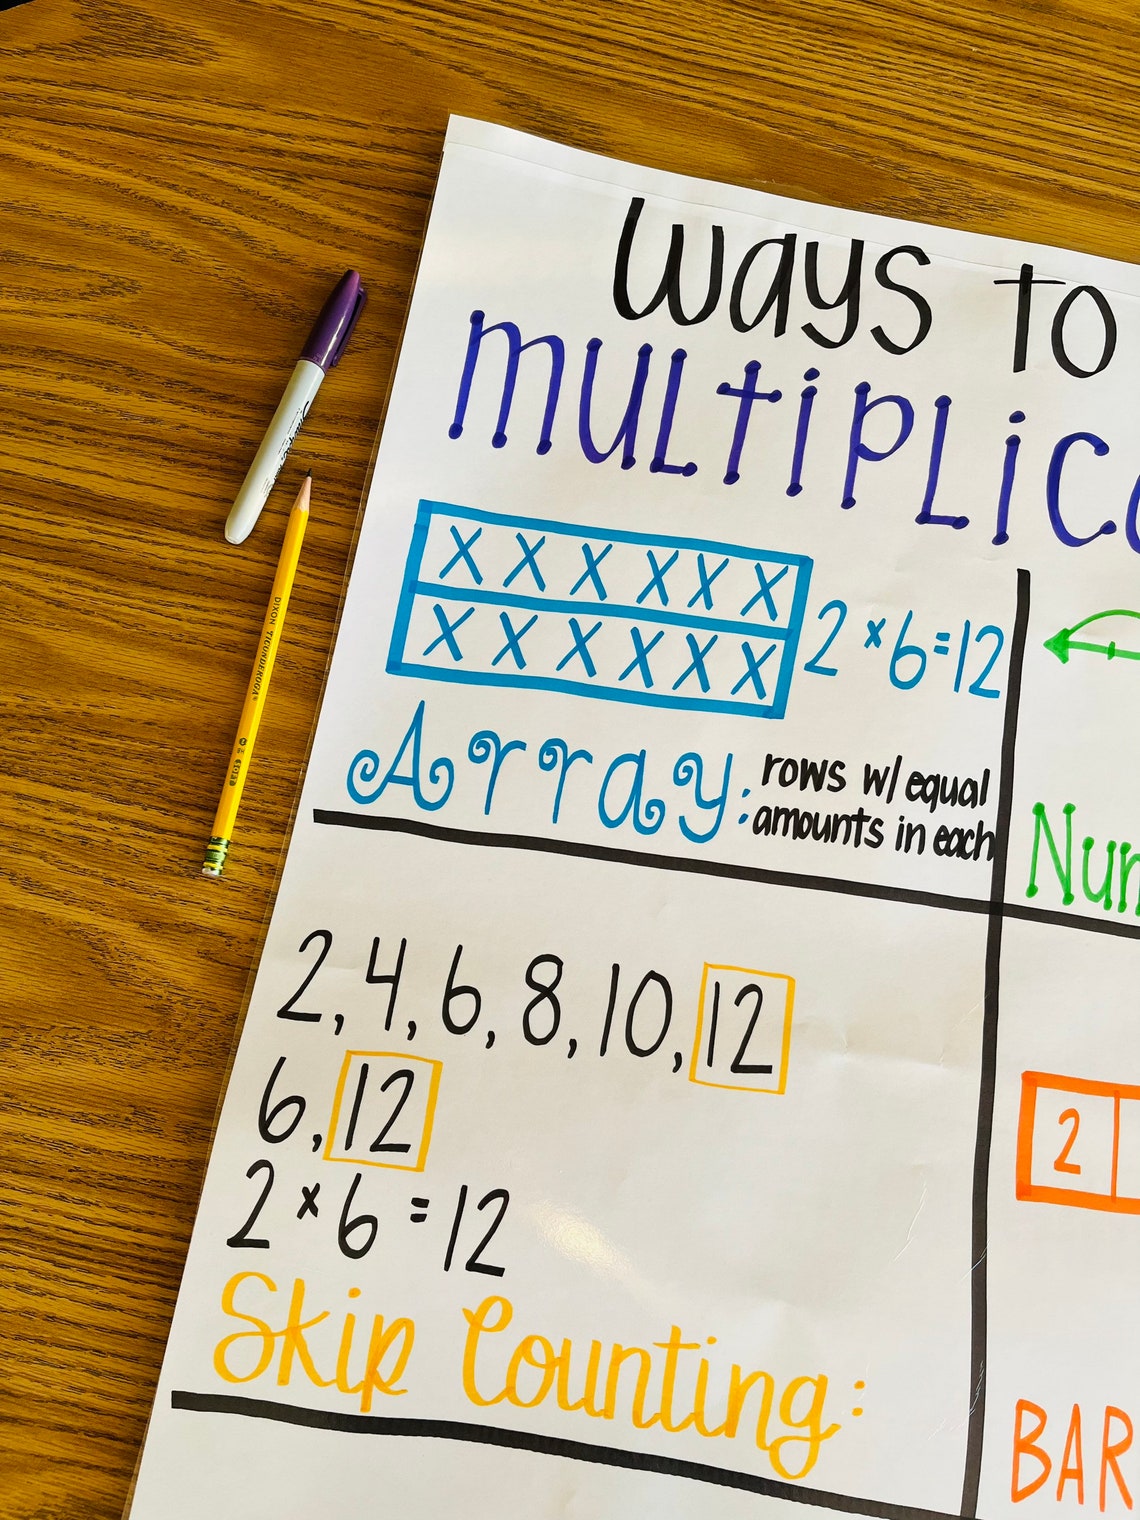 Ways to
multiplic
X X X X X X
X X X X X X
2 × 6 = 12
Array: rows w/ equal
amounts in each
Num
2, 4, 6, 8, 10, 12
6, 12
2 × 6 = 12
Skip Counting:
2
BAR
DIXON TICONDEROGA®